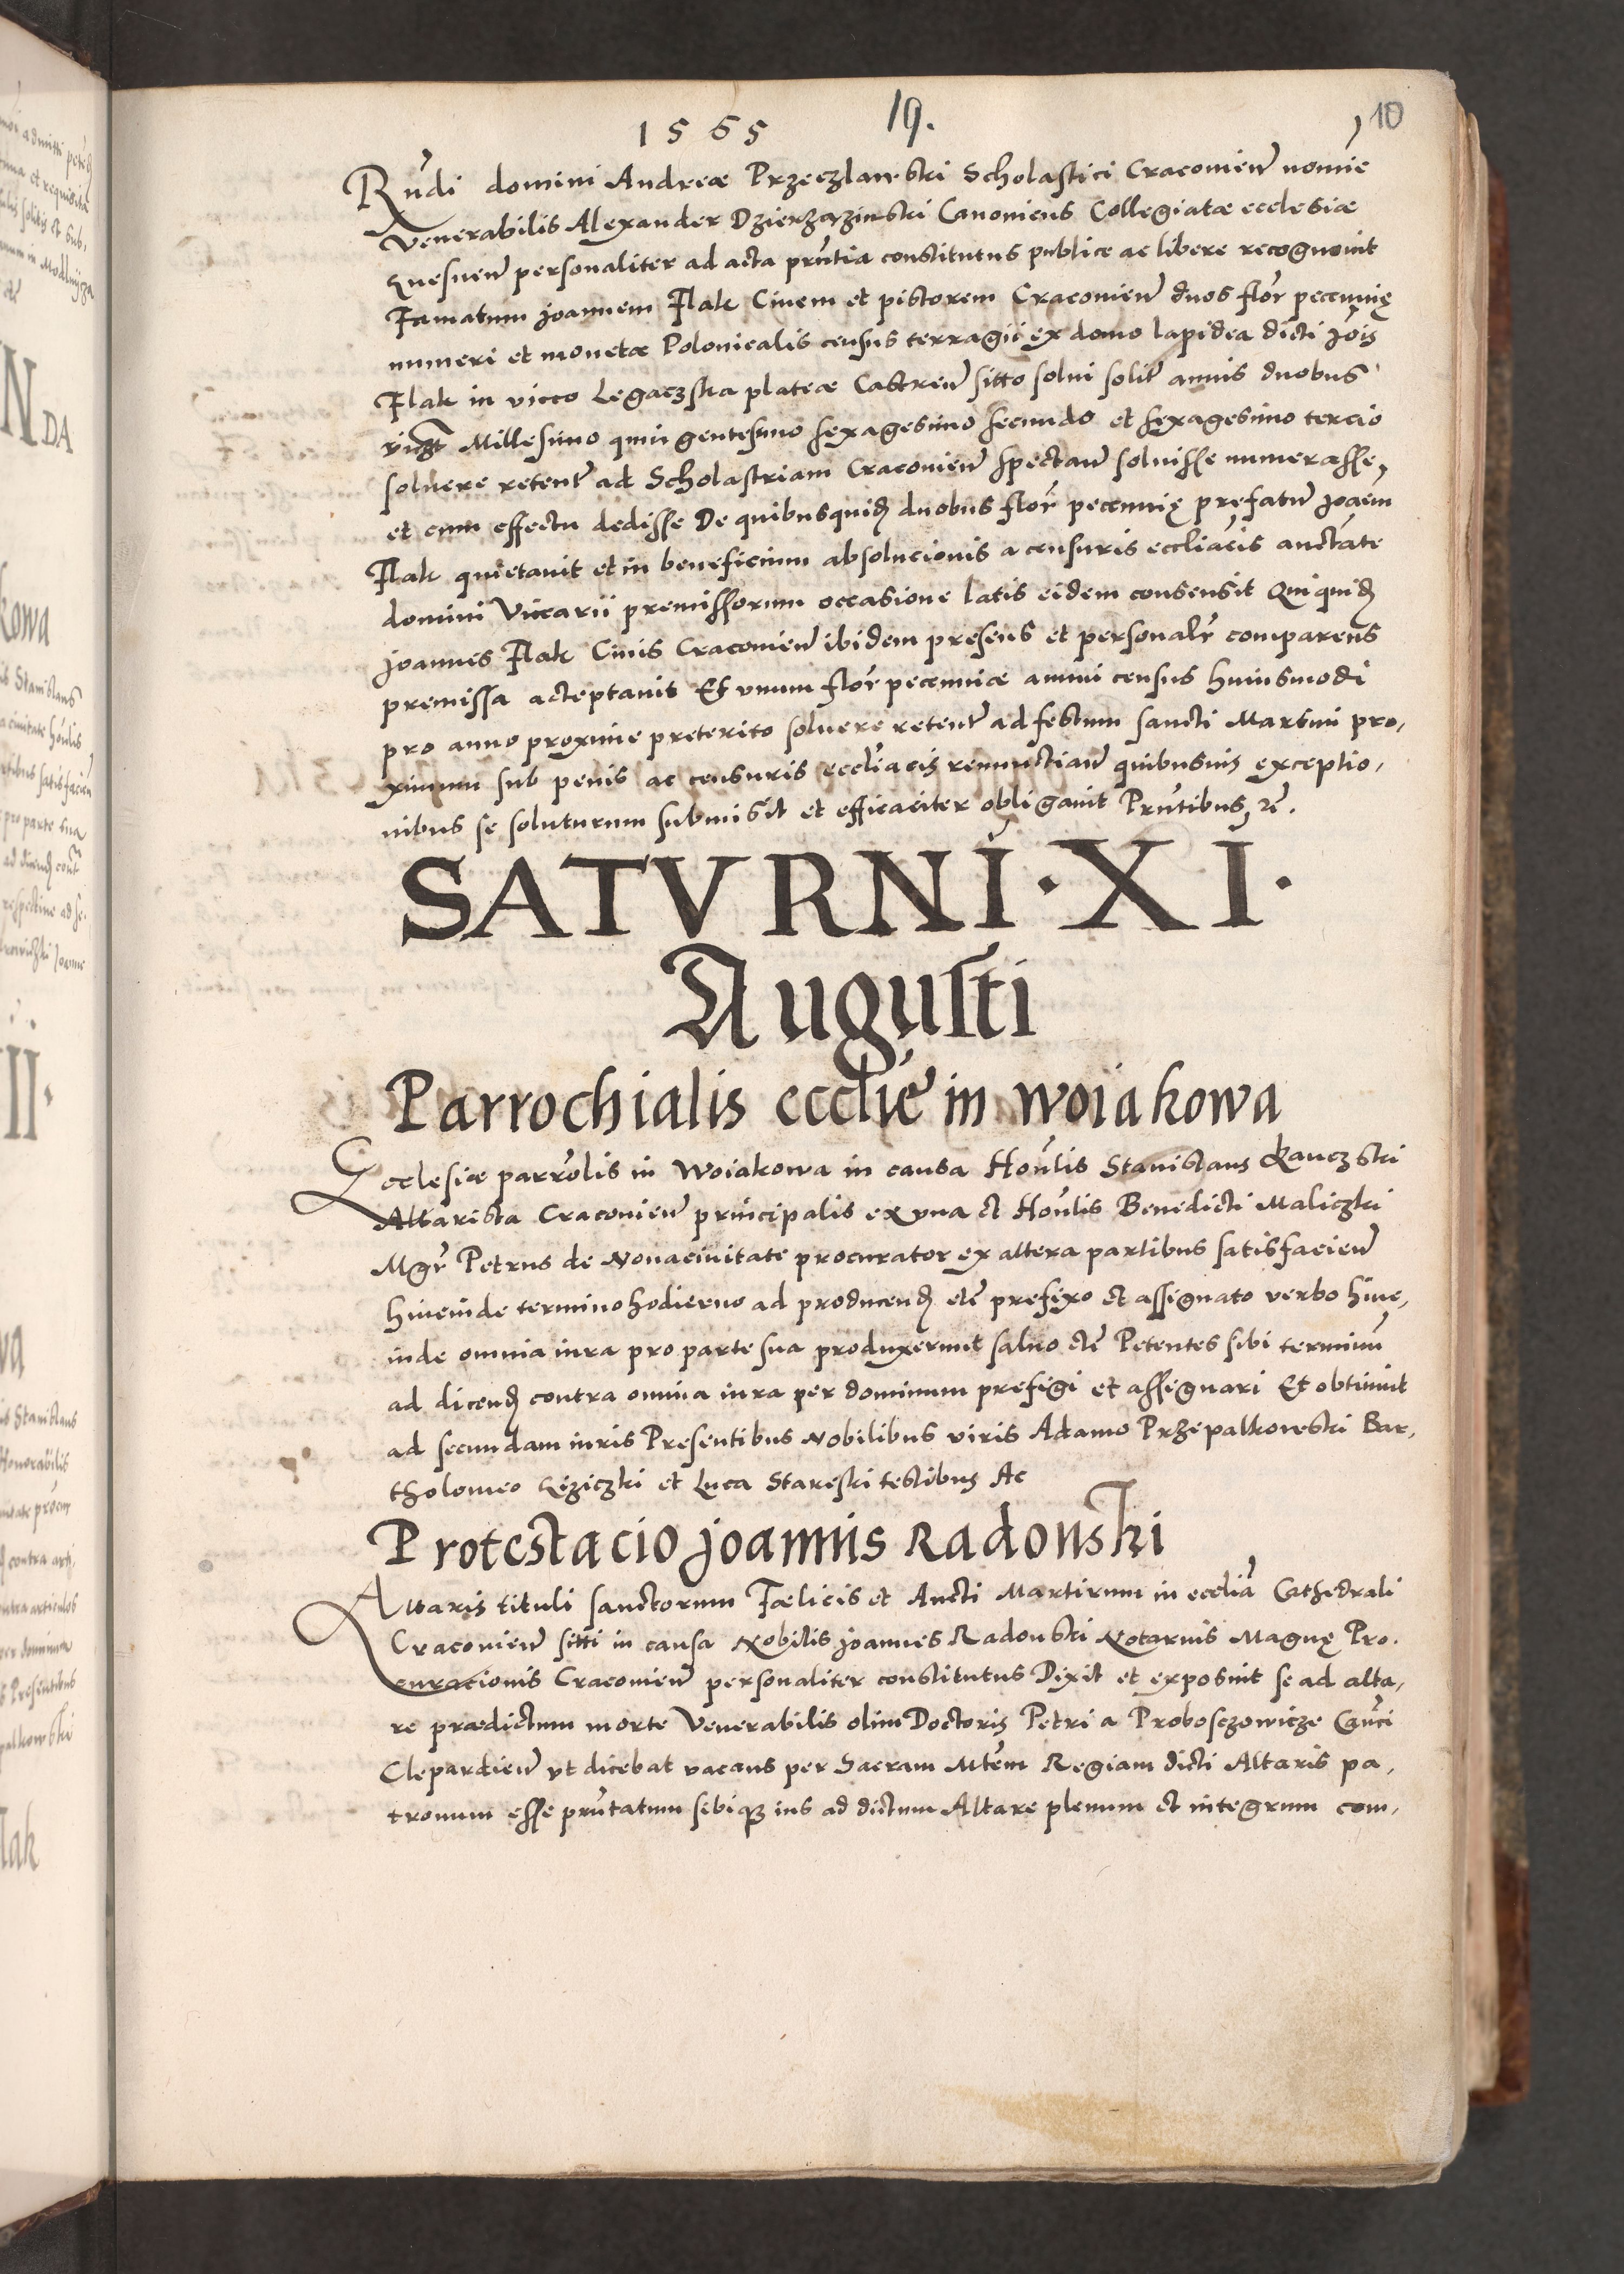 1565 19. 10
Rn̄di domini Andreæ Przeczlawski Scholastici Cracovieñ nomie
Venerabilis Alexander Dzierzczinski Canonicus Collegiatæ ecclesiæ
personaliter ad acta prn̄tia constitutus publice ac libere recognovit
Famatum joannem Flak Civem et pistorem Cracovieñ duos flor̄ pecunię
numeri et monetæ Polonicalis census terragii ex domo lapidea dicti jōis
Flak in vicco Legaczska plateæ Castreñ sitto solvi solit̄ annis duobus
Millesimo quingentesimo sexagesimo secundo et sexagesimo tercio
solvere retent̄ ad Scholastriam Cracovieñ spectañ solvisse numerasse,
et cum effectu dedisse De quibusquid̄ duobus flor̄ pecunię prefatū joaem
Flak quietavit et in beneficium absolucionis a censuris eccliacis auctate
domini Viccarii premissorum occasione latis eidem consensit Qui quid̄
joannes Flak Civis Cracovieñ ibidem presens et personalr̄ comparens
premissa acceptavit Et unum flor̄ pecuniæ annui census huiusmodi
pro anno proxime preterito solvere retent̄ ad festum sancti Martini pro,
ximum sub penis ac censuris eccl̄iacis renunctiañ quibusvis exceptio,
nibus se soluturum submisit et efficaciter obligavit Prn̄tibus, rc̄.
SATVRNI · XI ·
Augusti
Parrochialis eccliē in Woiakowa
Ecclesiæ parrolis in Woiakowa in causa Hon̄lis Stanislaus Kanczski
Altarista Cracovieñ principalis ex una et Hon̄lis Benedicti Maliczki
Mgr̄ Petrus de Novacivitate procurator ex altera partibus satisfacieñ
hincinde termino hodierno ad producend̄ etc̄ prefixo et assignato verbo hinc,
inde omnia iura pro parte sua produxerunt salvo etc̄ Petentes sibi terminū
ad dicend̄ contra omnia iura per dominum prefigi et assignari Et obtinuit
ad secundam iuris Presentibus Nobilibus viris Adamo Przepalkowski Bar,
tholomeo Liziczki et Luca Stareski testibus Ac
Protestacio joannis Radonski
Altaris tituli sanctorum Fælicis et Aucti Martirum in ecclīa Cathedrali
Cracovieñ sitti in causa Nobilis joannes Radonski Notarius Magnę Pro.
curacionis Cracovieñ personaliter constitutus Dixit et exposuit se ad alta,
re prædictum morte Venerabilis olim Doctoris Petri a Proboszczowicze Can̄ci
Clepardieñ ut dicebat vacans per Sacram Mtēm Regiam dicti Altaris pa,
tronum esse prn̄tatum sibiq₃ ius ad dictum Altare plenum et integrum com,